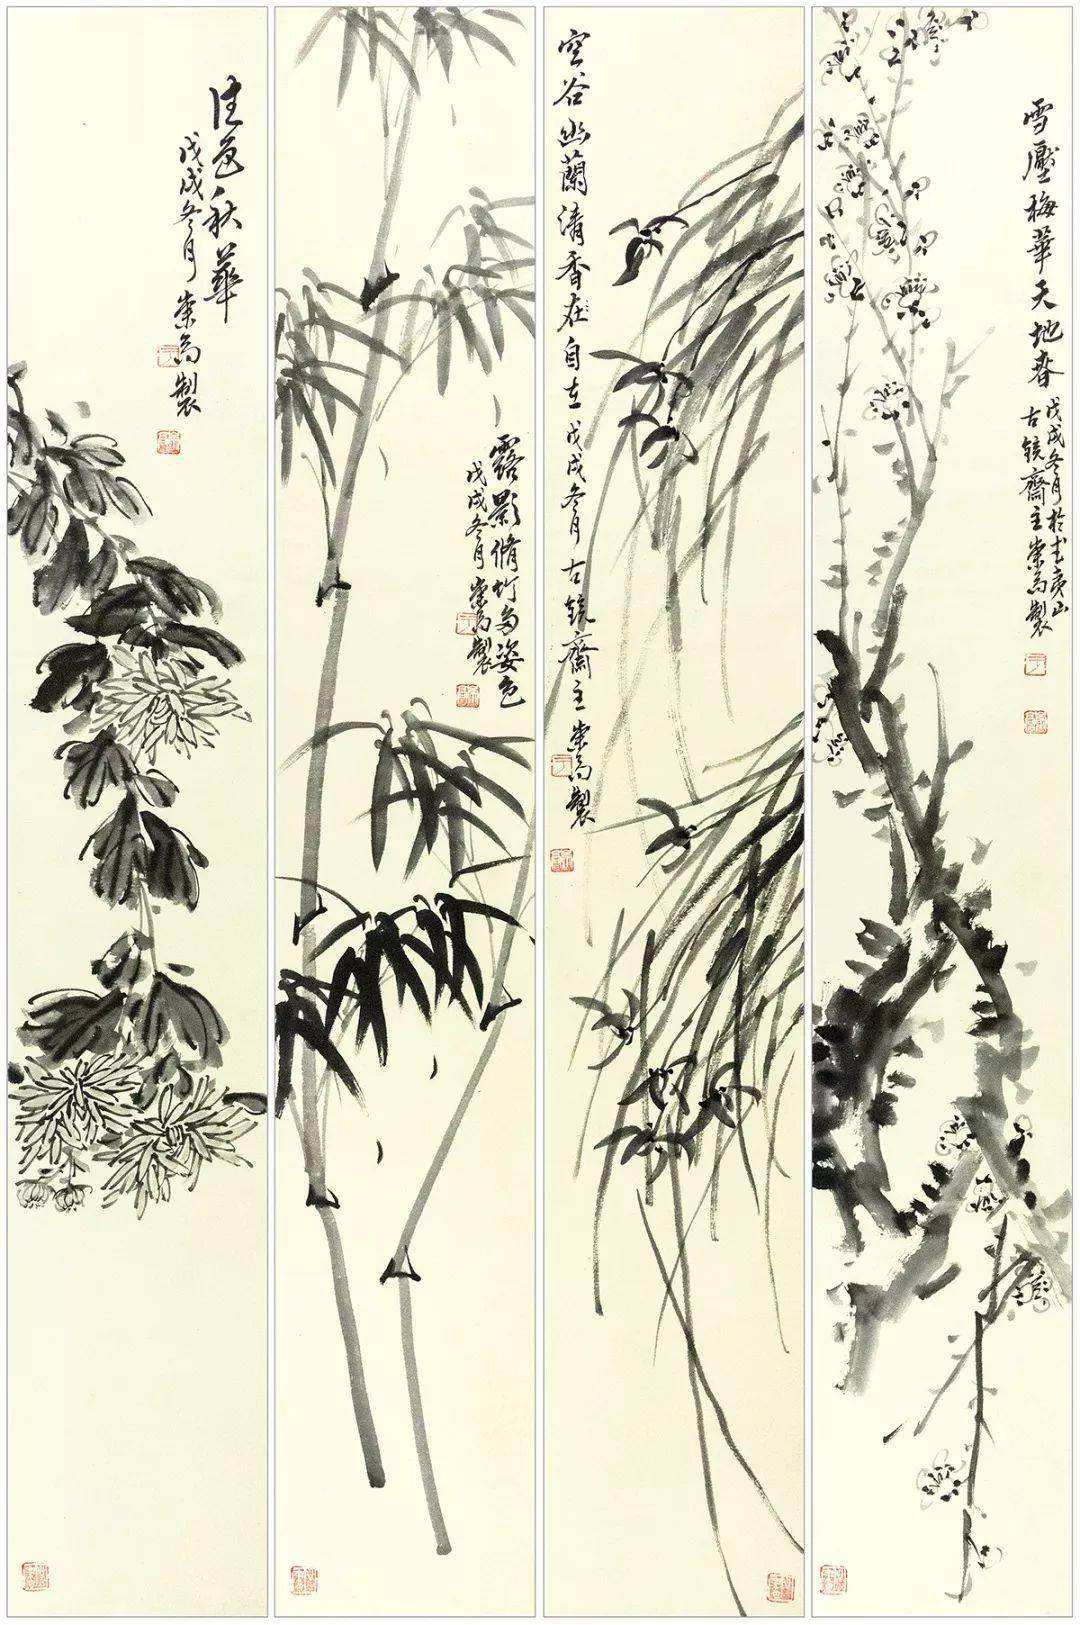 雪壓梅華天地春
戊戌冬月於武夷山
古鏡齋主崇高製
空谷幽蘭清香在自立戊戌冬月古鏡齋主崇高製
露影脩竹多姿色
戊戌冬月崇高製
佳色秋華
戊戌冬月崇高製